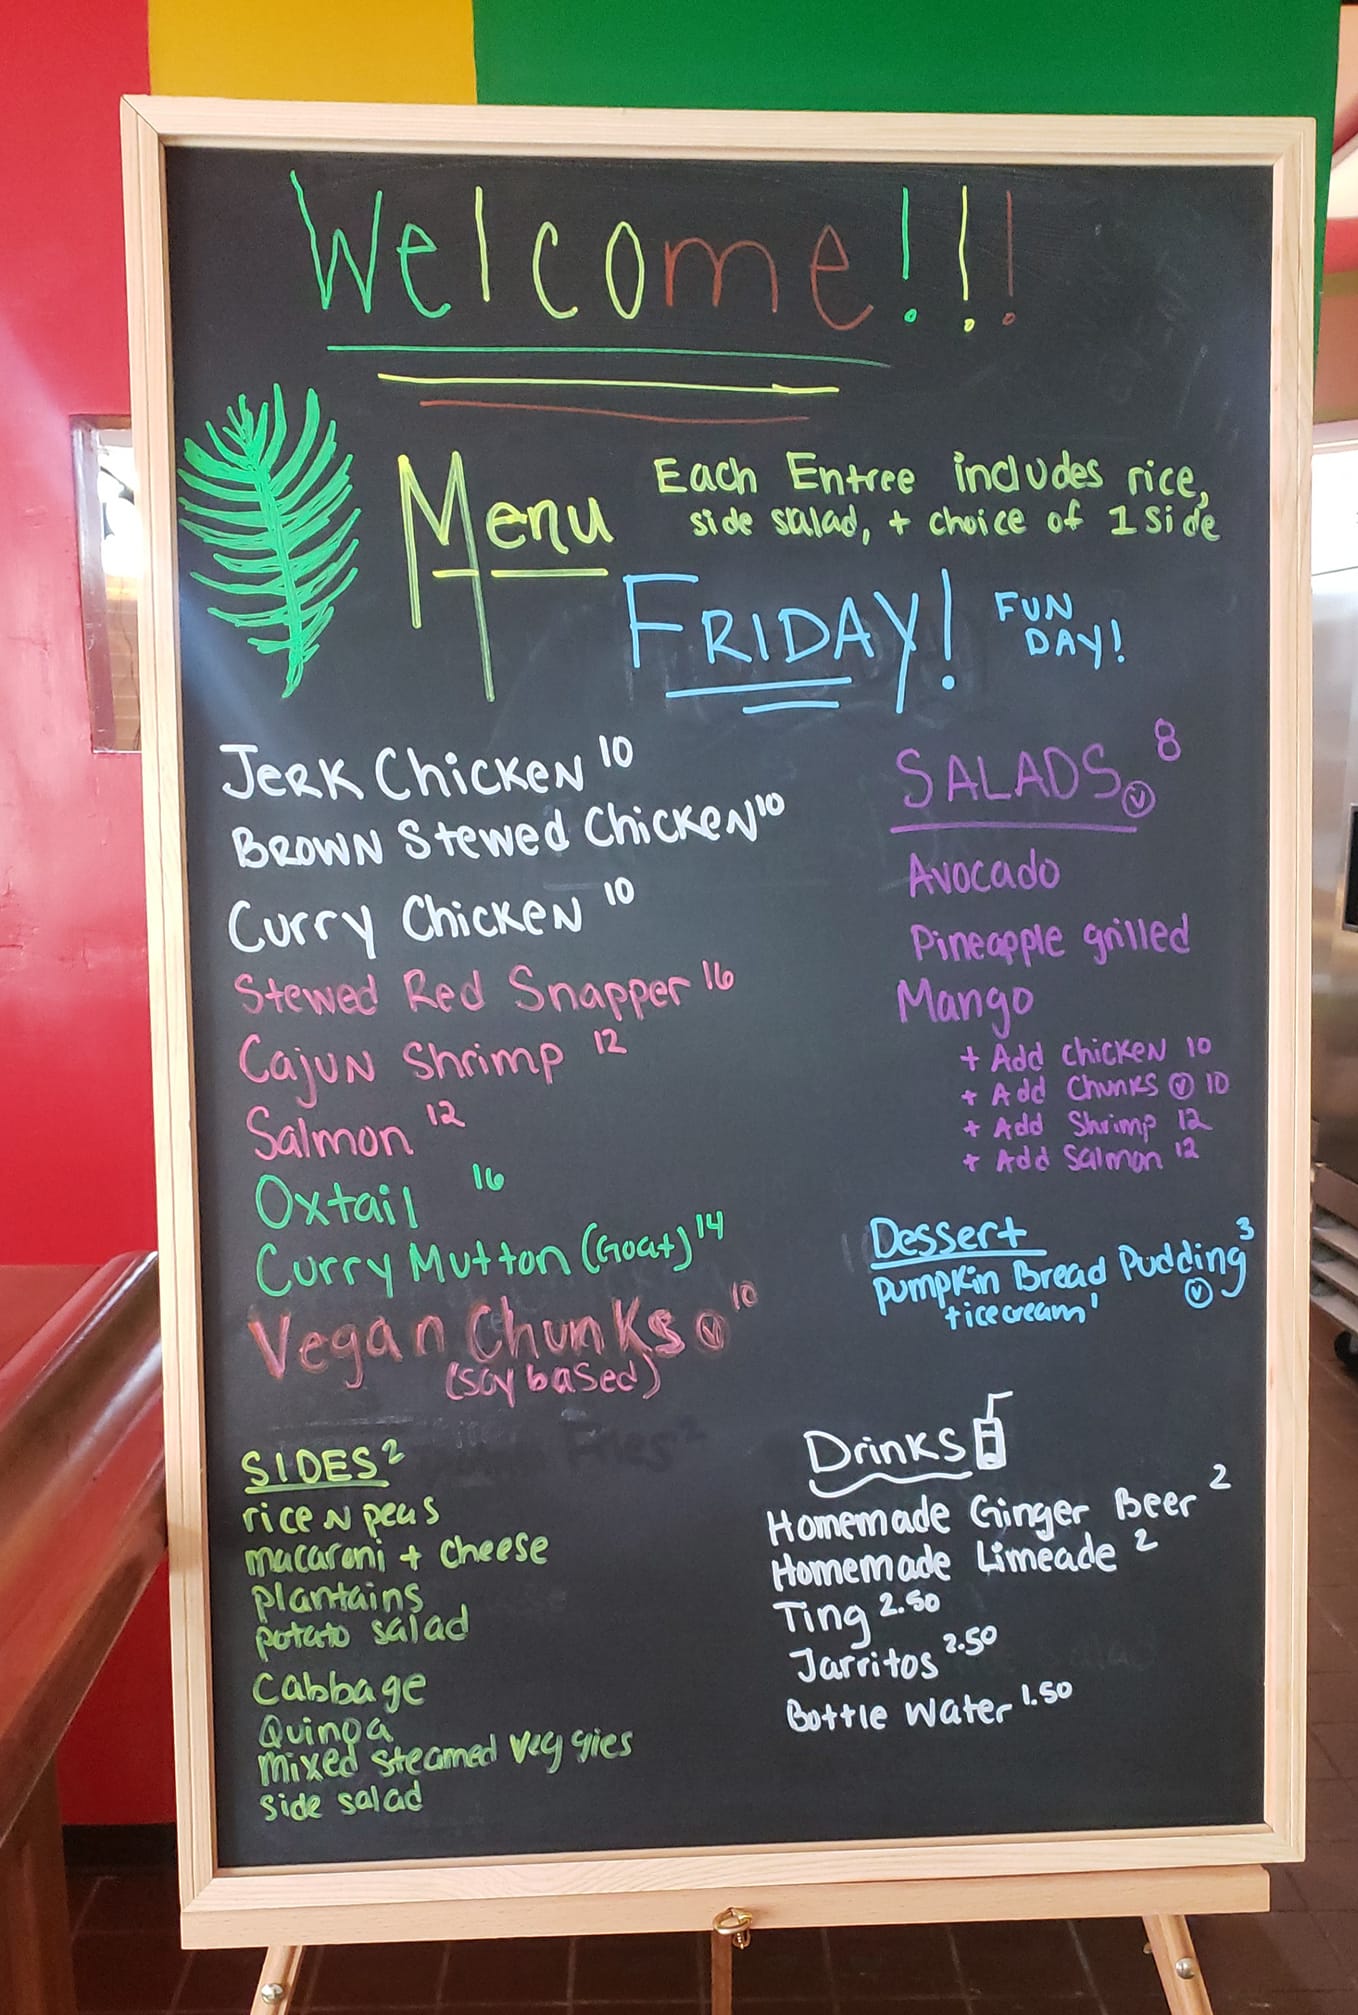 Welcome!!!
Menu
Each Entree includes rice,
side salad, + choice of 1 side
FRIDAY!
FUN
DAY!
Jerk Chicken 10
Brown Stewed Chicken 10
Curry Chicken 10
Stewed Red Snapper 16
Cajun Shrimp 12
Salmon 12
Oxtail 16
Curry Mutton (Goat) 14
Vegan Chunks V 10
(soy based)
SIDES 2
rice n peas
macaroni + cheese
plantains
potato salad
Cabbage
Quinoa
mixed steamed veggies
side salad
SALADS V 8
Avocado
Pineapple grilled
Mango
+ Add chicken 10
+ Add Chunks V 10
+ Add Shrimp 12
+ Add Salmon 12
Dessert
Pumpkin Bread Pudding 3
+icecream' V
Drinks
Homemade Ginger Beer 2
Homemade Limeade 2
Ting 2.50
Jarritos 2.50
Bottle Water 1.50